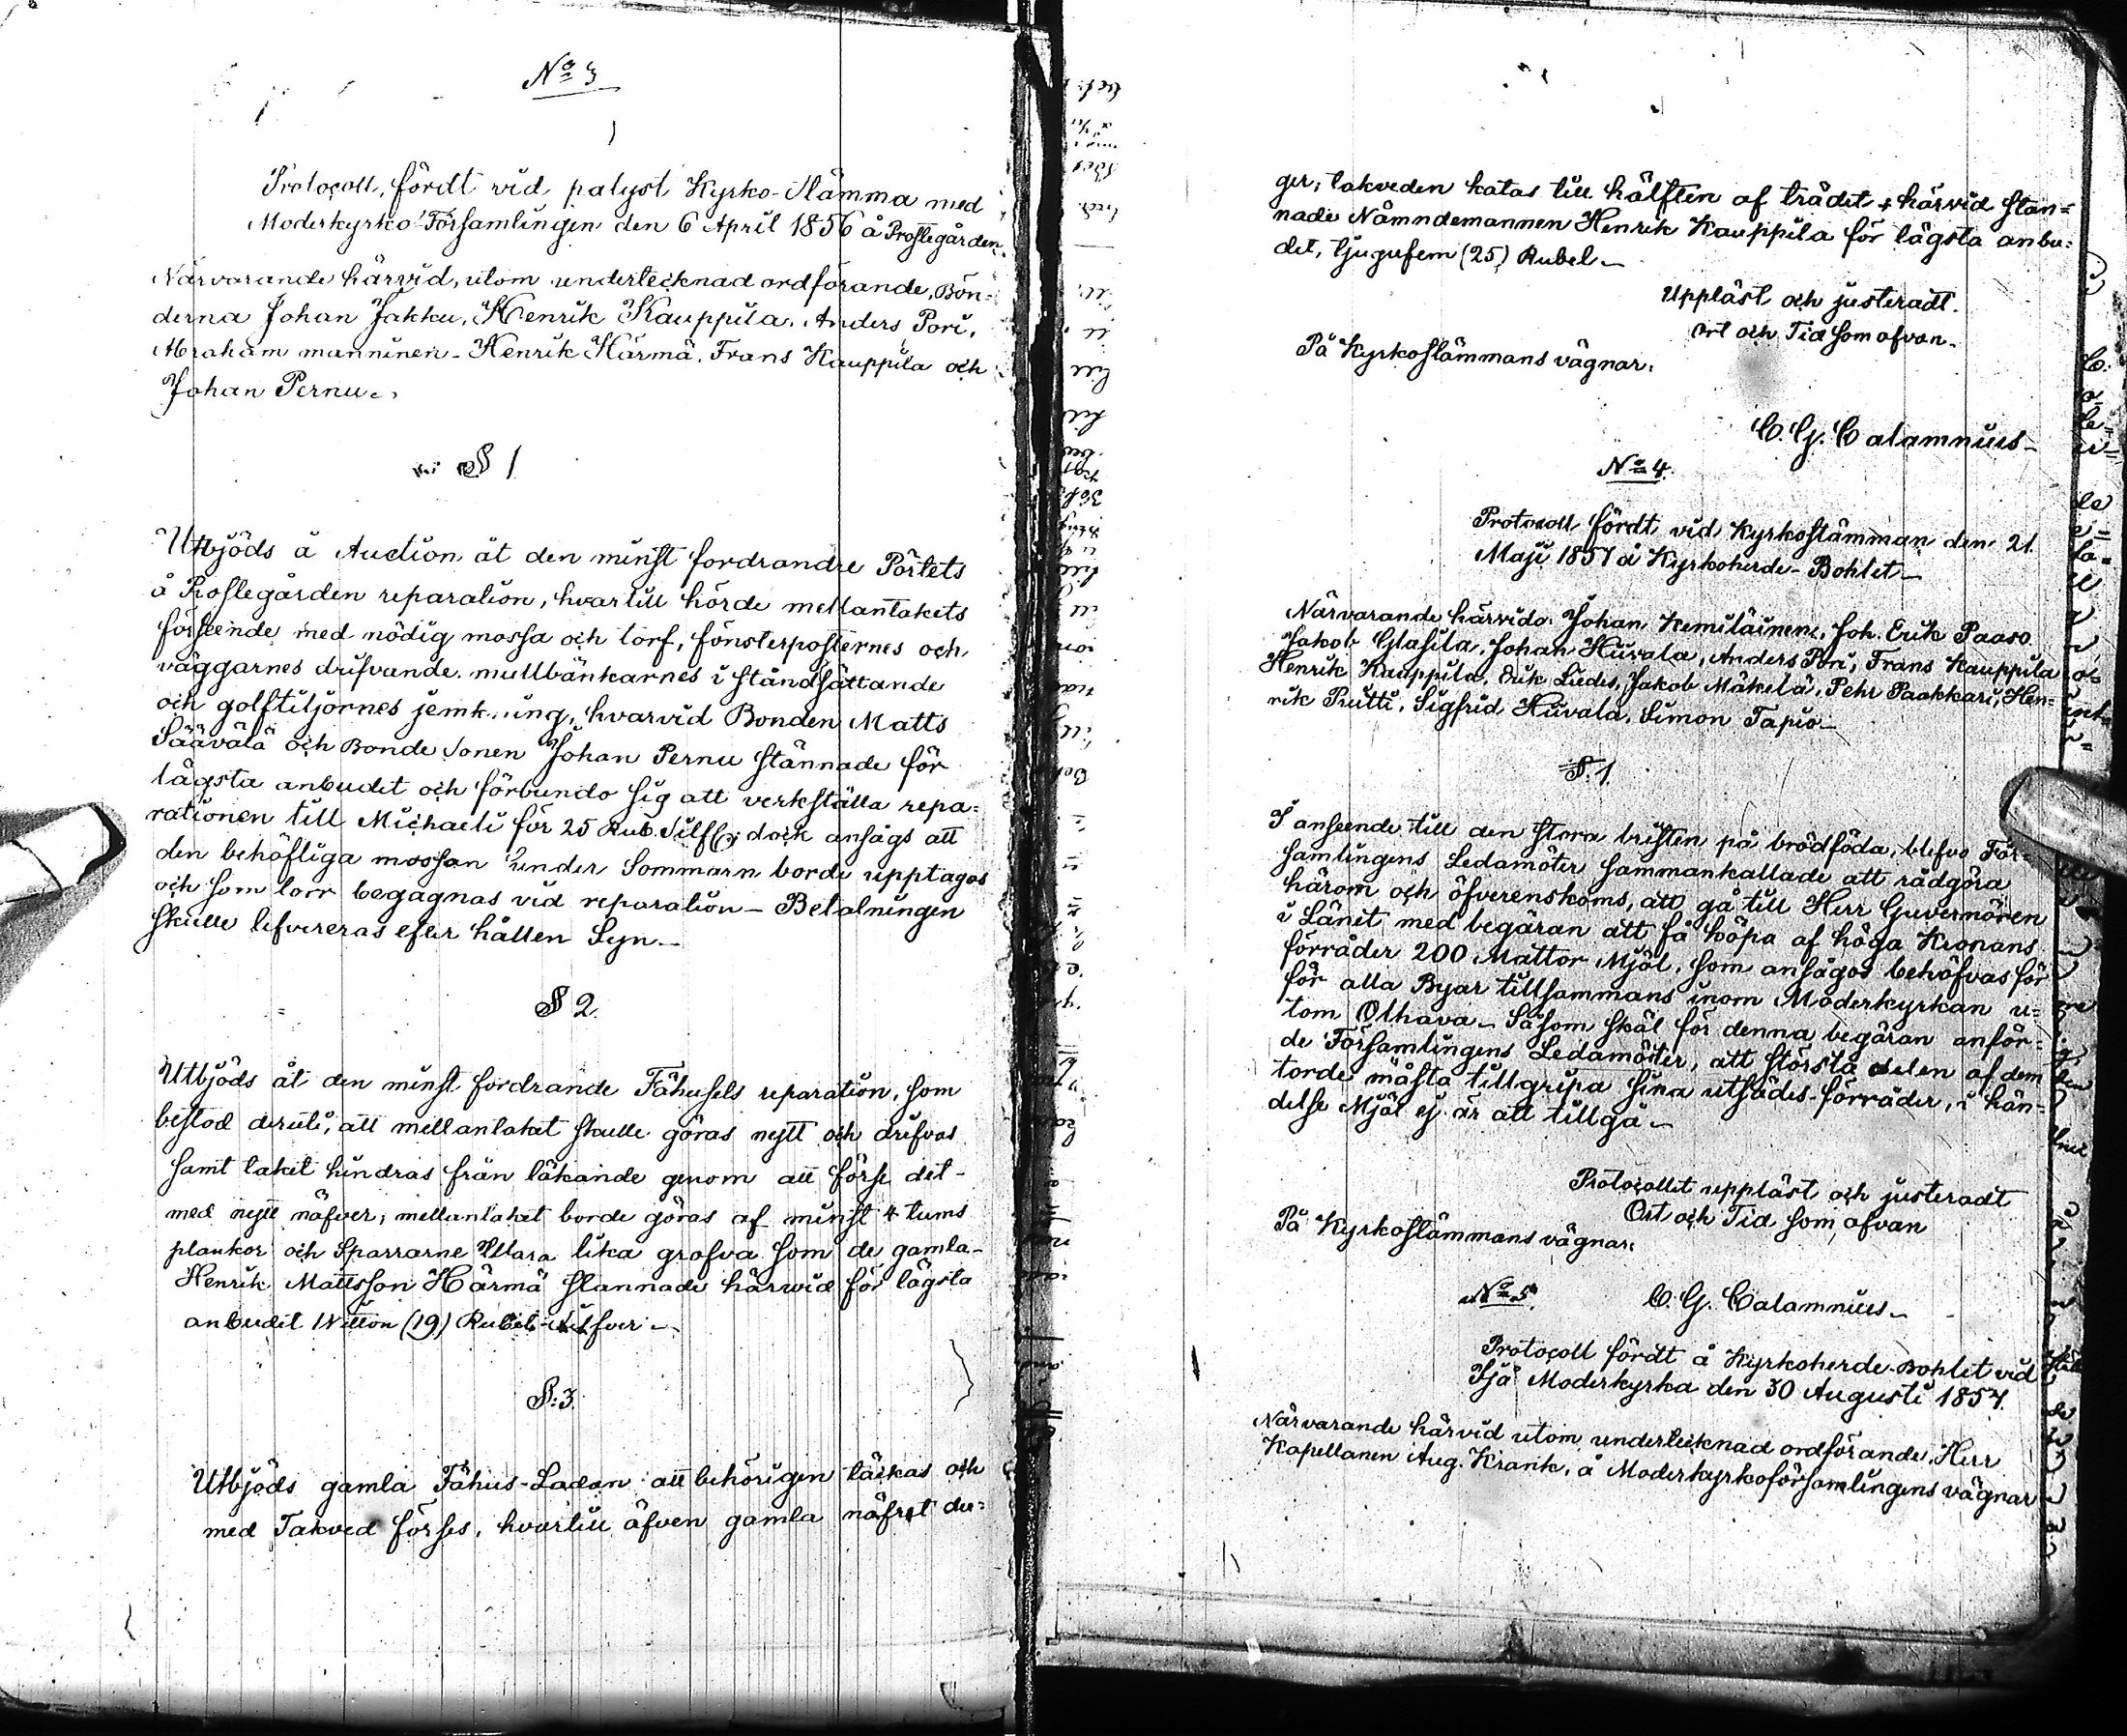 No 3
Protocoll, fördt vid palyst Kyrko-Stämma med
Moderkyrko Församlingen den 6 April 1856 å Prostegården.
Närvarande härvid, utom undertecknad ordförande, Bön=
derna Johan Jakku, Henrik Kauppila, Anders Pori,
Abraham manninen - Henrik Härmä, Frans Kauppila och
Johan Pernu.
§ 1
Utbjöds å Auction åt den minst fordrandre Pörtets
å Prostegården reparation, hvartill hörde mellantakets
förseende med nödig mossa och torf, fönsterposternes och
väggarnes drifvande, mullbänkarnes i ståndsättande
och golftiljornes jemkning, hvarvid Bonden Matts
Säävälä och Bonde Sonen Johan Pernu stannade för
lägsta anbudet och förbundo sig att verkställa repa=
rationen till Michaeli för 25 Rub. Silf dock ansågs att
den behöfliga mossan under Sommarn borde upptagas
och som torr begagnas vid reparation - Betalningen
skulle lefvereras efter hållen Syn.-
§ 2.
Utbjöds åt den minst fordrande Fähusets reparation, som
bestod deruti, att mellantaket skulle göras nytt och drifvas
samt taket hindras från läkande genom att förse det-
med nytt näfver; mellantaket borde göras af minst 4 tums
plankor och Sparrarne vara lika grofva som de gamla-
Henrik Mattsson Härmä stannade härvid för lägsta
anbudet Nitton (19) Rubel Silfver -
§: 3.
Utbjöds gamla Fähus-Ladan att behörigen täckas och
med Takved förses, hvartill äfven gamla näfret du=
ger; takveden katas till hälften af trädet & härvid stan=
nade Nämndemannen Henrik Kauppila för lägsta anbu=
det, tjugufem (25) Rubel -
Uppläst och justeradt.
Ort och Tid som ofvan-
På Kyrkostämmans vägnar:
C. G. Calamnius-
No 4.
Protocoll fördt vid Kyrkostämman den 21.
Maji 1857 å Kyrkoherde-Bohlet-
Närvarande härvid: Johan Kemiläinen, Joh. Erik Paaso
Jakob Glasila, Johan Hiivala, Anders Pori, Frans Kauppila
Henrik Kauppila, Erik Liedes, Jakob Mäkelä, Pehr Paakkari, Hen=
rik Priitti, Sigfrid Hiivala, Simon Tapio-
§. 1.
I anseende till den stora bristen på brödföda, blefvo För=
samlingens Ledamöter sammankallade att rådgöra
härom och öfverenskoms, att gå till Herr Guvernören
i Länet med begäran att få köpa af höga Kronans
förråder 200 Mattor Mjöl, som ansågos behöfvas för
för alla Byar tillsammans inom Moderkyrkan u=
tom Olhava - Såsom skäl för denna begäran anför=
de Församlingens Ledamöter, att största delen af dem
torde måsta tillgripa sina utsädes-förråder, i hän=
delse Mjöl ej är att tillgå -
Protocollet uppläst och justeradt
Ort och Tid som ofvan
På Kyrkostämmans vägnar:
No 5.
C. G. Calamnius-
Protocoll fördt å Kyrkoherde-Bohlet vid
Ijå Moderkyrka den 30 Augusti 1857.
Närvarande härvid utom undertecknad ordförande, Herr
Kapellanen Aug. Krank, å Moderkyrkoförsamlingens vägnar